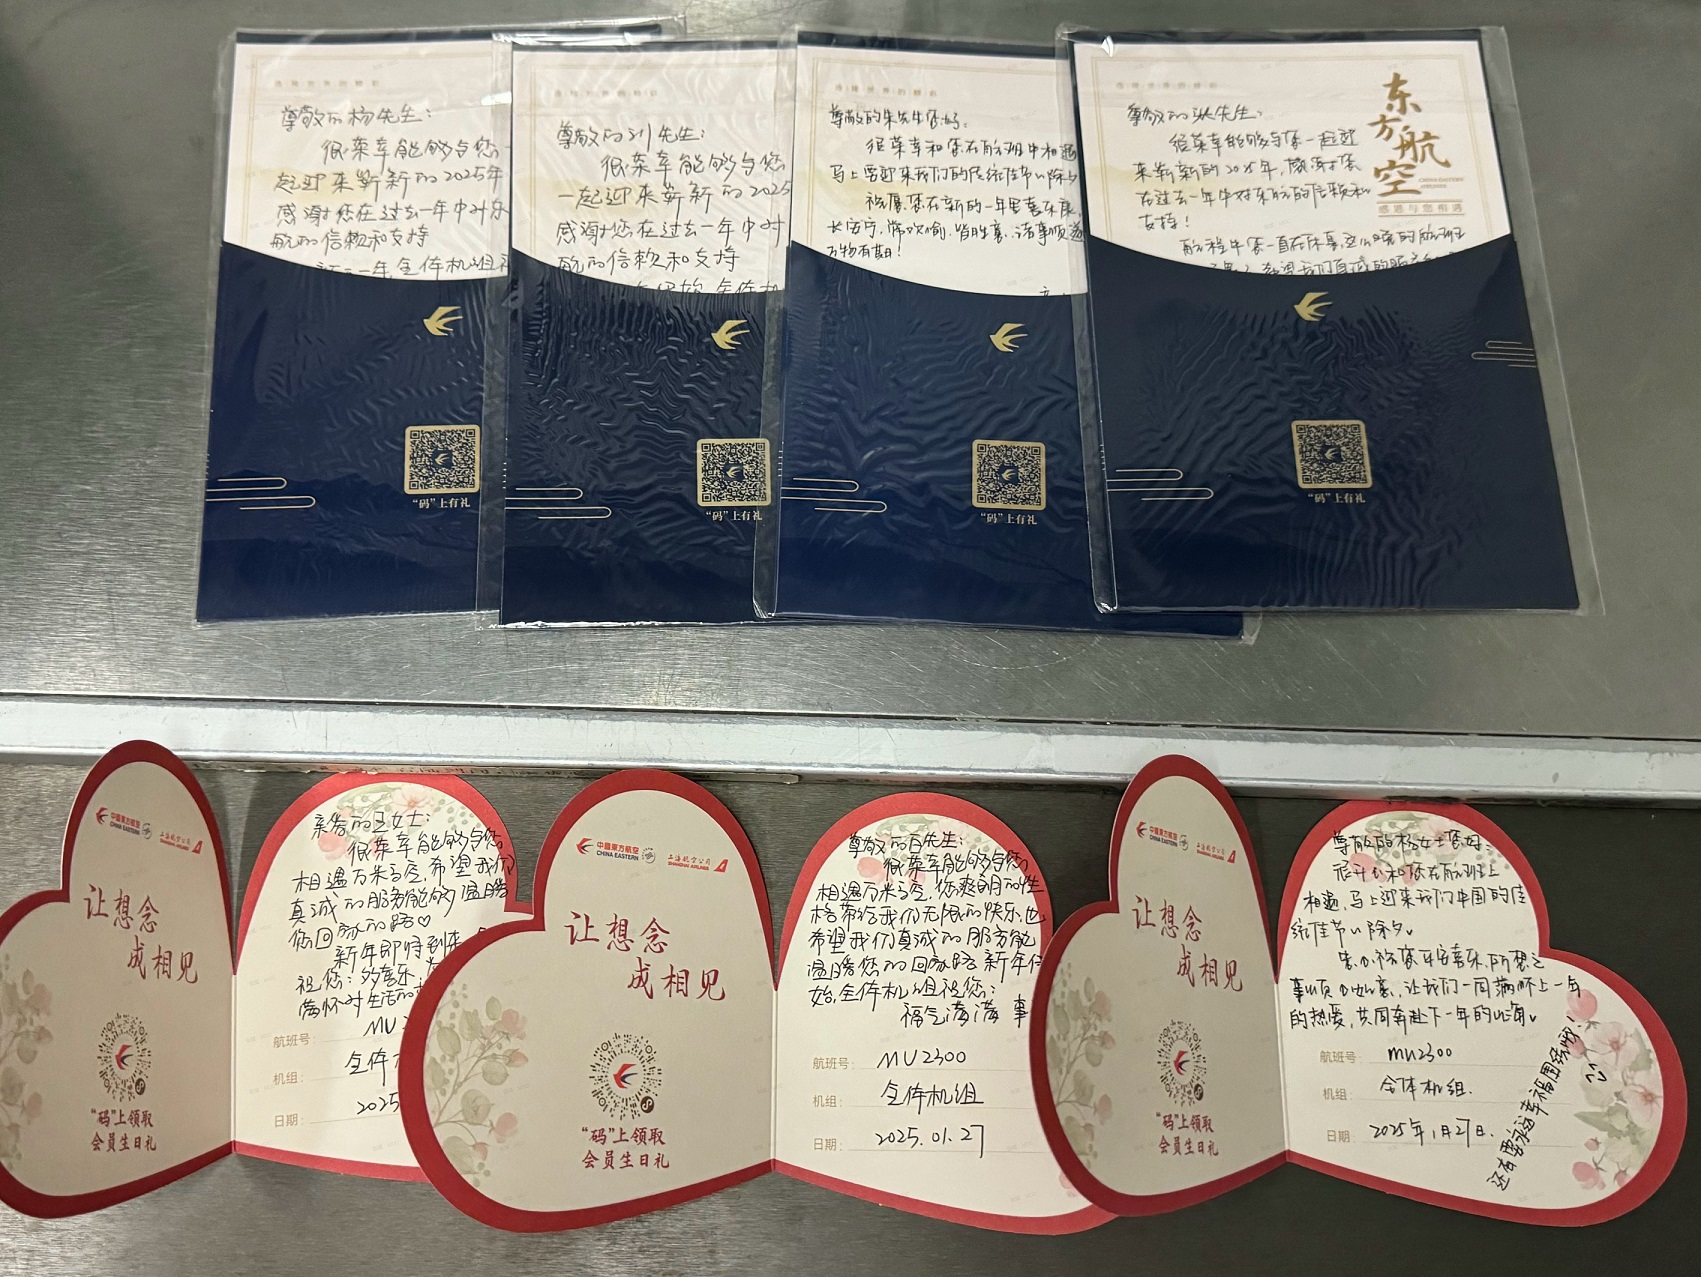 连接世界的精彩
尊敬的杨先生:
很荣幸能够与您一
起迎来崭新的2025年
感谢您在过去一年中对东
航的信赖和支持
新的一年,全体机组祝
“码”上有礼
尊敬的刘先生:
很荣幸能够与您
一起迎来崭新的2025
感谢您在过去一年中对
航的信赖和支持
“码”上有礼
连接世界的精彩
尊敬的朱先生您好:
很荣幸和您在航班中相遇
马上要迎来我们的传统佳节“除夕
祝愿您在新的一年里喜乐康,
长安宁,常欢愉,皆胜意,诸事顺遂
万物有期!
“码”上有礼
连接世界的精彩
东方航空
CHINA EASTERN
AIRLINES
感恩与您相遇
尊敬的张先生:
很荣幸能够与您一起迎
来崭新的2025年,感谢您
在过去一年中对东航的信赖和
支持!
航程中您一直在休息,
“码”上有礼
中國東方航空
CHINA EASTERN
上海航空公司
SHANGHAI AIRLINES
让想念
成相见
“码”上领取
会员生日礼
亲爱的王女士:
很荣幸能够与您
相遇万米高空,希望我们
真诚的服务能够温暖
您回家的路♡
新年即将到来
祝您:多喜乐,
满怀对生活的
航班号:MU2
机组:全体
日期:2025
中國東方航空
CHINA EASTERN
上海航空公司
SHANGHAI AIRLINES
让想念
成相见
“码”上领取
会员生日礼
尊敬的百先生:
很荣幸能够与您
相遇万米高空,您爽朗的性
格带给我们无限的快乐,也
希望我们真诚的服务能
温暖您的回家路,新年伊
始,全体机组祝您:
福气满满 事
航班号:MU2300
机组:全体机组
日期:2025.01.27
中國東方航空
CHINA EASTERN
上海航空公司
SHANGHAI AIRLINES
让想念
成相见
“码”上领取
会员生日礼
尊敬的杨女士您好:
很开心和您在航班上
相遇,马上迎来我们中国的传
统佳节“除夕”
衷心祝愿您平安喜乐,所想之
事顺心如意,让我们一同满怀上一年
的热爱,共同奔赴下一年的山海。
航班号:MU2300
机组:全体机组.
日期:2025年1月27日.